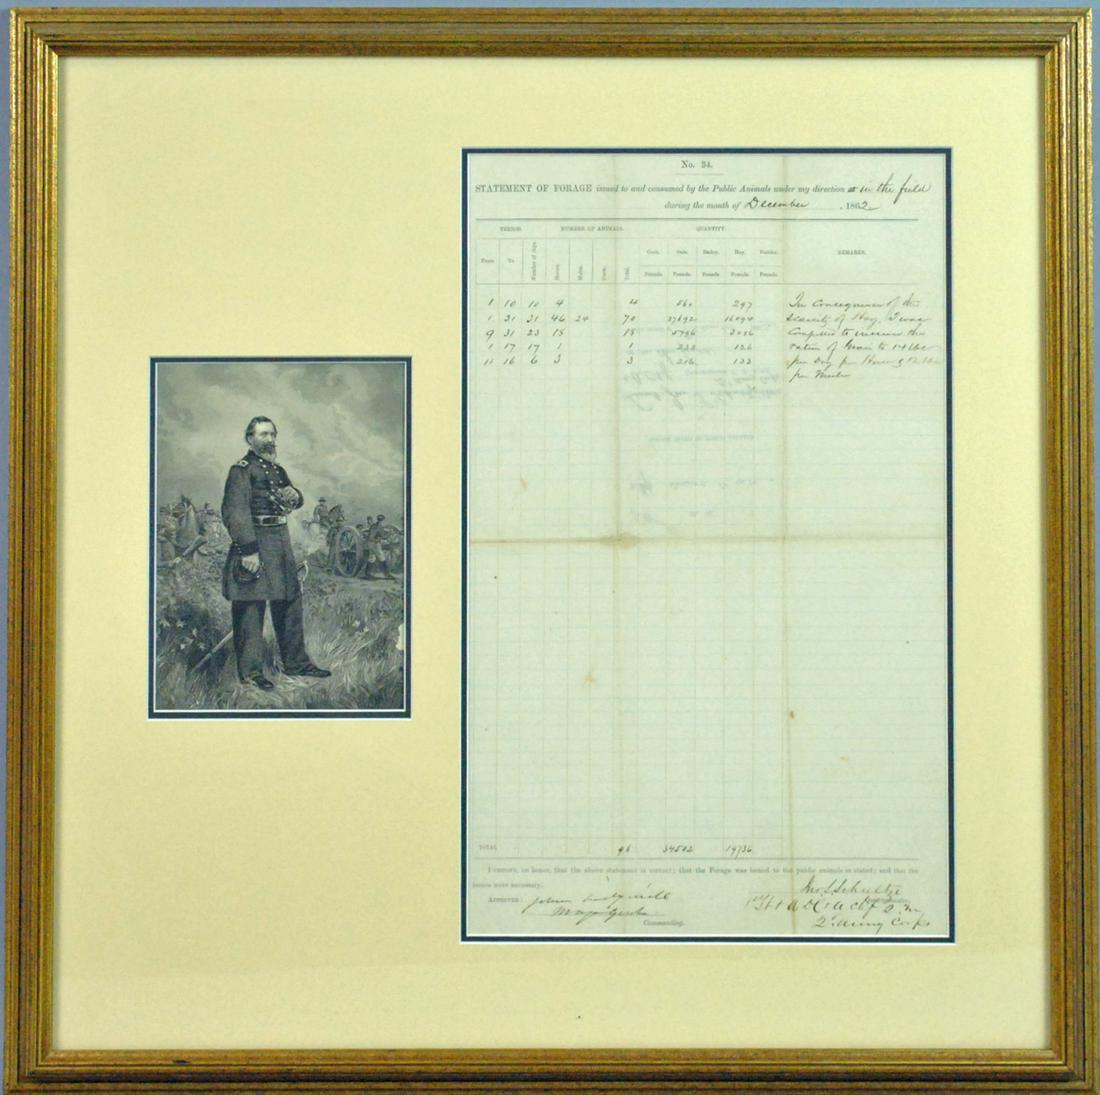 No. 34.
STATEMENT OF FORAGE issued to and consumed by the Public Animals under my direction at in the field
during the month of December , 1862
PERIOD. NUMBER OF ANIMALS. QUANTITY.
From To Number of days Horses. Mules. Oxen. Total. Corn. Oats. Barley. Hay. Fodder. REMARKS.
Pounds. Pounds. Pounds. Pounds. Pounds.
1 10 10 4 4 560 297 In consequence of the
1 31 31 46 24 70 27692 16094 scarcity of Hay, I was
9 31 23 18 18 5796 compelled to increase the
1 17 17 1 1 238 126 ration of Grain to 14 lbs
11 16 6 3 3 216 122 per Day per Horse & 12 lbs
per Mule
TOTAL, 96 34502 19736
I CERTIFY, on honor, that the above statement is correct; that the Forage was issued to the public animals as stated; and that the
issues were necessary.
Jno S Schultze
APPROVED: John Sedgwick
Maj Genl
Commanding.
2d Army Corps